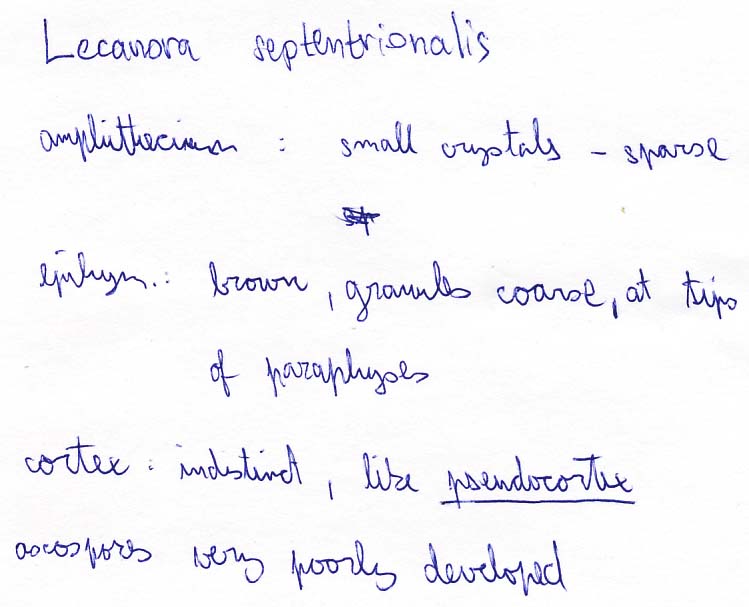 Lecanora septentrionalis
amphithecium : small crystals – sparse
epihym.: brown, granules coarse, at tips
of paraphyses
cortex: indistinct, like pseudocortex
ascospores very poorly developed